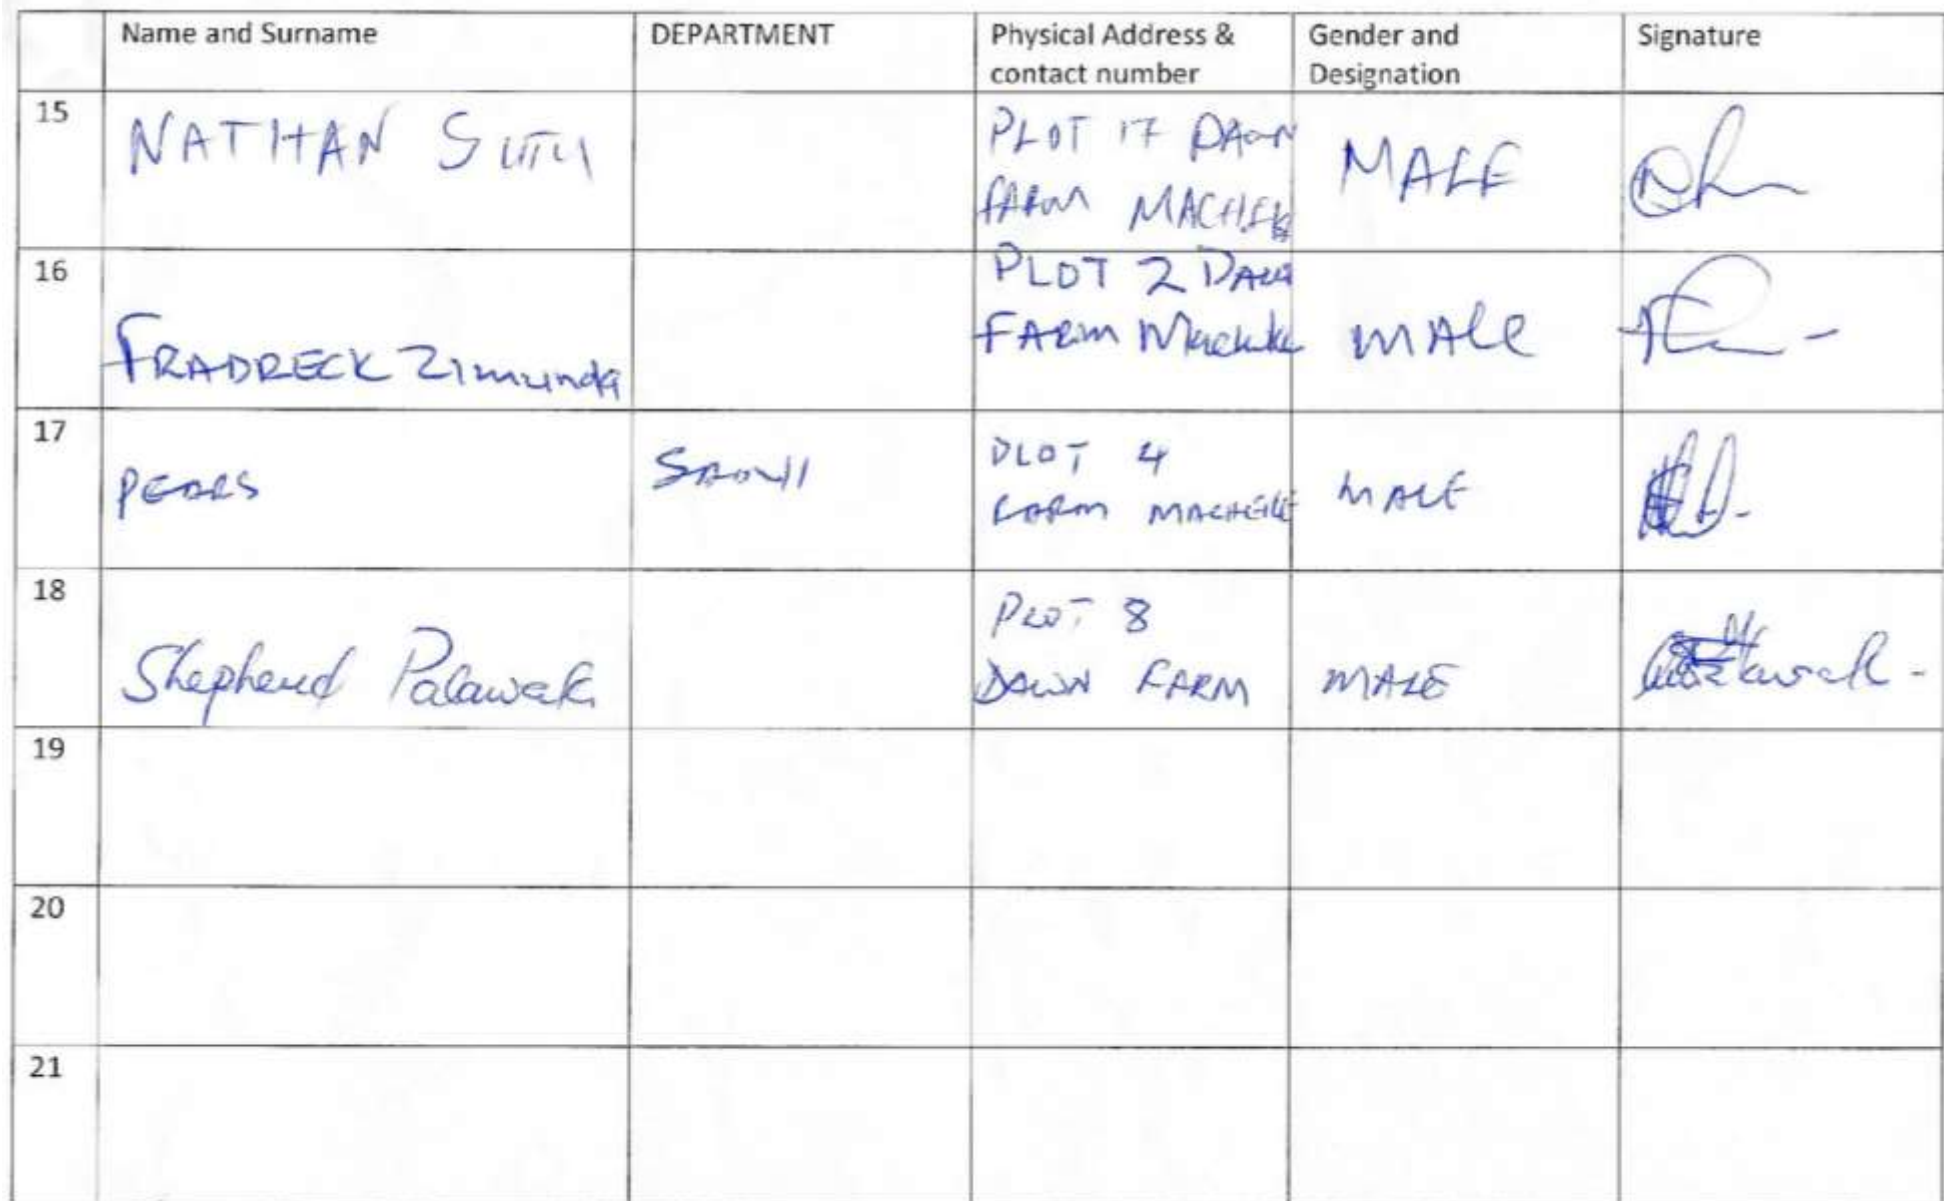 Name and Surname DEPARTMENT Physical Address & contact number Gender and Designation Signature
15 NATHAN PLOT 17 DAWN
FARM MACHEKE MALE
16 FRADRECK Zimunda PLOT 2 DAWN
FARM Macheke MALE
17 PEARS PLOT 4
FARM MACHEKE MALE
18 Shepherd Palawak PLOT 8
DAWN FARM MALE
19
20
21